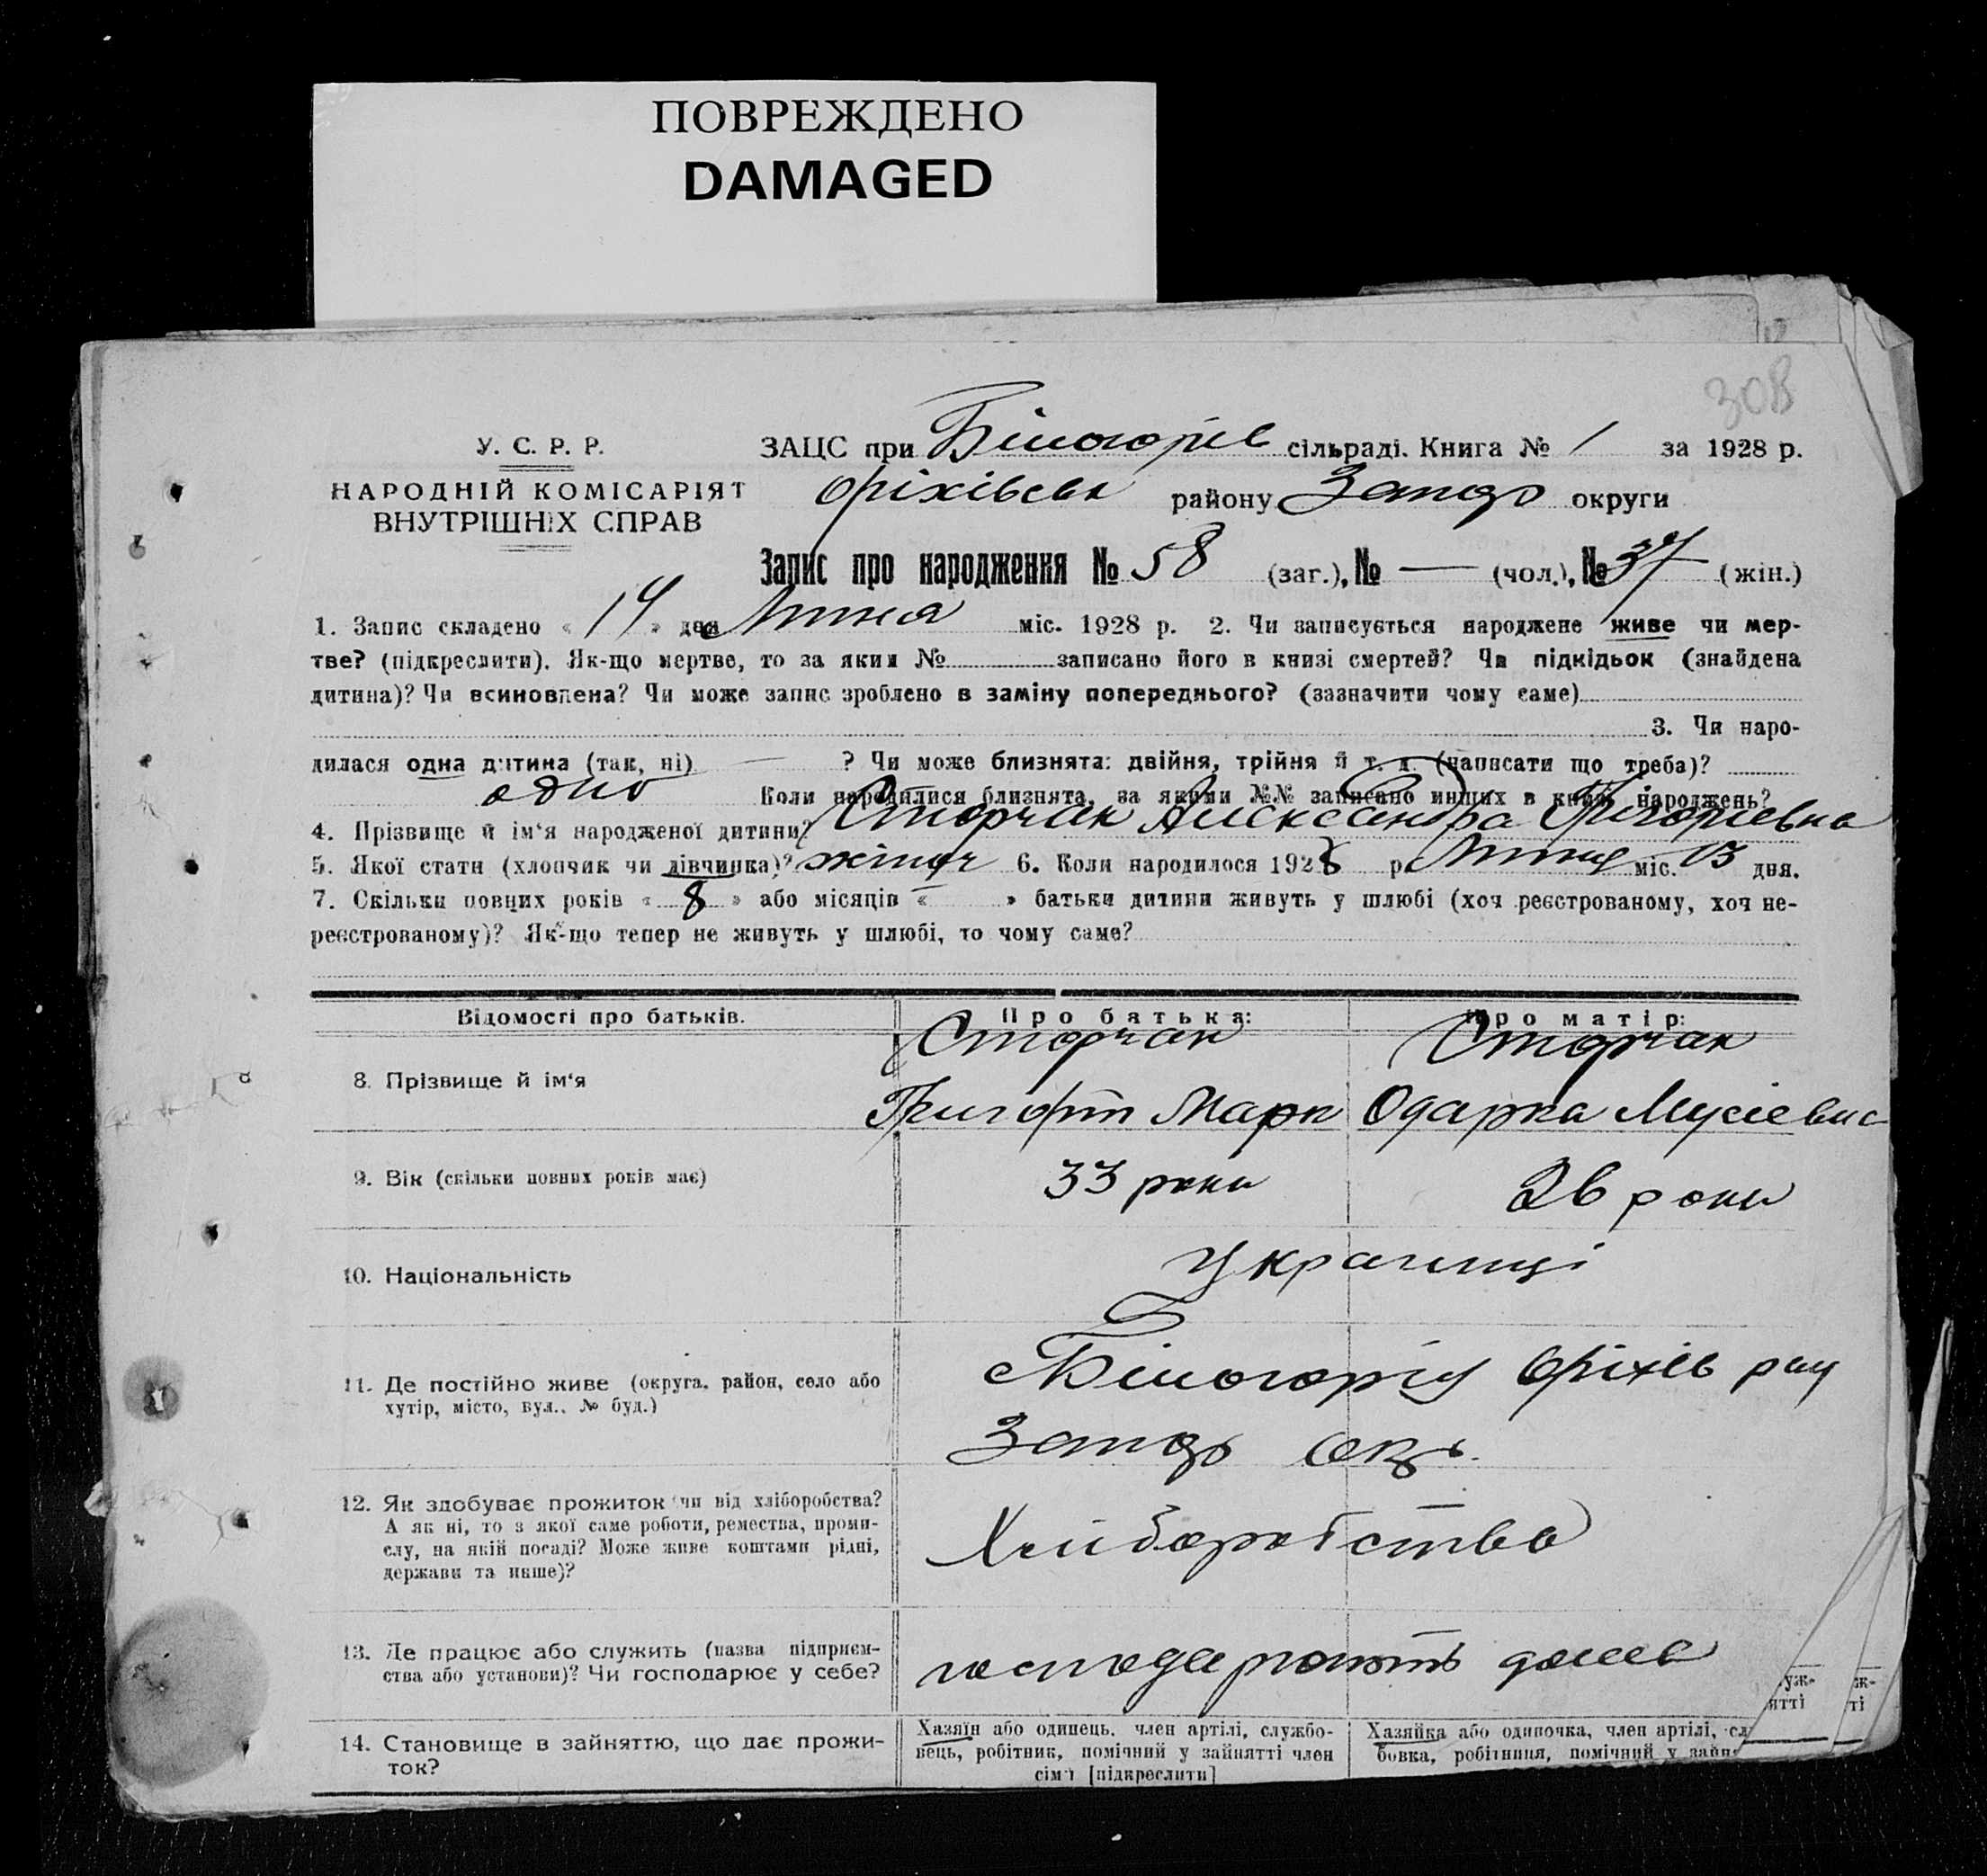 ПОВРЕЖДЕНО
DAMAGED
308
У. С. Р. Р.
НАРОДНІЙ КОМІСАРІЯТ
ВНУТРІШНІХ СПРАВ
ЗАЦС при Білогорів сільраді. Книга № 1 за 1928 р.
Оріхівськ району Запор округи
Запис про народження № 58 (заг.), № — (чол.), № 37 (жін.)
1. Запис складено « 14 » дня Липня міс. 1928 р. 2. Чи записується народжене живе чи мер-
тве? (підкреслити). Як-що мертве, то за яким № записано його в книзі смертей? Чи підкідьок (знайдена
дитина)? Чи всиновлена? Чи може запис зроблено в заміну попереднього? (зазначити чому саме)
3. Чи наро-
дилася одна дитина (так, ні) — ? Чи може близнята: двійня, трійня й т. д. (написати що треба)?
одно Коли народилися близнята, за якими №№ записано инших в книзі народжень?
4. Прізвище й ім‘я народженої дитини? Сторчак Александра Григориевна
5. Якої стати (хлопчик чи дівчинка)? жіноч 6. Коли народилося 1928 р. Липня міс. 13 дня.
7. Скільки повних років « 8 » або місяців « — » батьки дитини живуть у шлюбі (хоч реєстрованому, хоч не-
реєстрованому)? Як-що тепер не живуть у шлюбі, то чому саме?
Відомості про батьків. Про батька: Про матір:
8. Прізвище й ім‘я Сторчак Сторчак
Григорій Марк Одарка Мусіевна
9. Вік (скільки повних років має) 33 роки 26 роки
10. Національність Украинці
11. Де постійно живе (округа, район, село або
хутір, місто, вул., № буд.)
Білогорія Оріхів рай
Запор окр.
12. Як здобуває прожиток чи від хліборобства?
А як ні, то з якої саме роботи, ремества, проми-
слу, на якій посаді? Може живе коштами рідні,
держави та инше)?
Хліборобство
13. Де працює або служить (назва підприєм-
ства або установи)? Чи господарює у себе?
господарюють дома
14. Становище в зайняттю, що дає прожи-
ток?
Хазяїн або одинець, член артілі, службо-
вець, робітник, помічний у зайнятті член
сім‘ї [підкреслити]
Хазяйка або одиночка, член артілі, сл
бовка, робітниця, помічний у зайн
уж-
ятті
ж-
ті